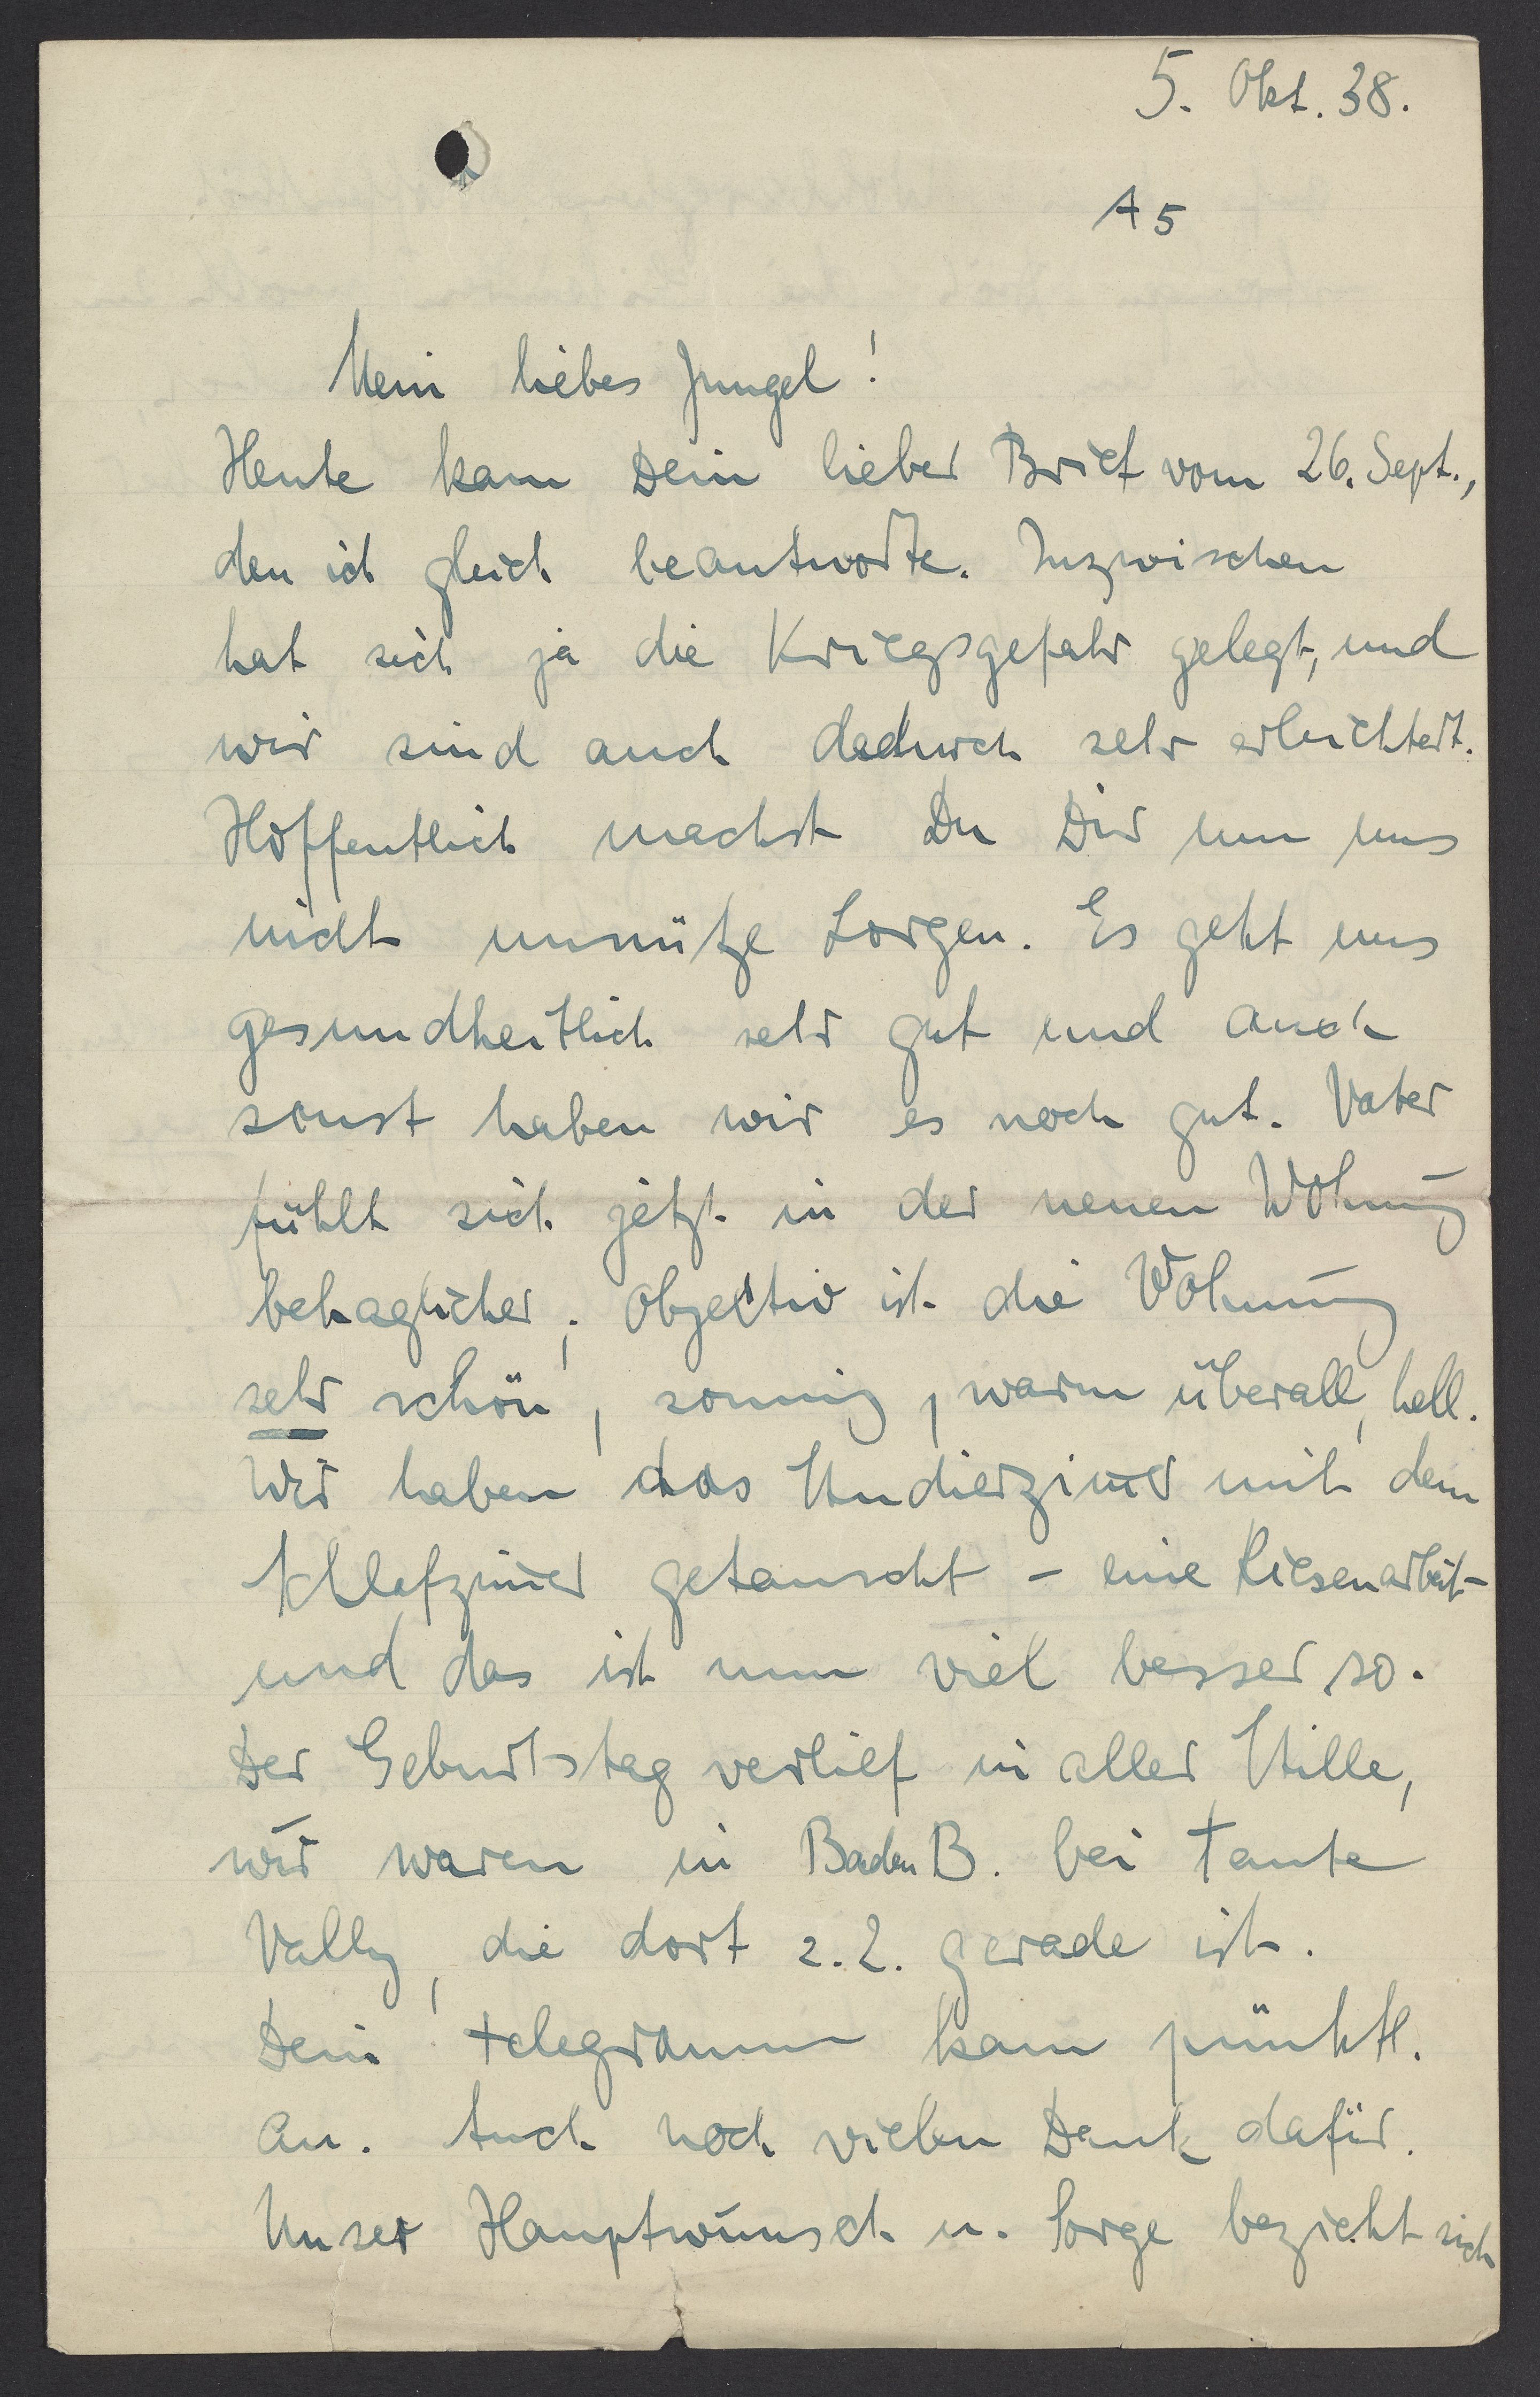 5. Okt. 38.
A 5
Mein liebes Jungel!
Heute kam Dein lieber Brief vom 26. Sept.,
den ich gleich beantworte. Inzwischen
hat sich ja die Kriegsgefahr gelegt, und
wir sind auch dadurch sehr erleichtert.
Hoffentlich machst Du Dir um uns
nicht unnütze Sorgen. Es geht uns
gesundheitlich sehr gut und auch
sonst haben wir es noch gut. Vater
fühlt sich jetzt in der neuen Wohnung
behaglicher; objectiv ist die Wohnung
sehr schön, sonnig, warm überall, hell.
Wir haben das Studierzim̅er mit dem
Schlafzim̅er getauscht - eine Riesenarbeit -
und das ist nun viel besser so.
Der Geburtstag verlief in aller Stille,
wir waren in Baden B. bei Tante
Vally, die dort z. Z. gerade ist.
Dein Telegramm kam pünktl.
an. Auch noch vielen Dank dafür.
Unser Hauptwunsch u. Sorge bezieht sich